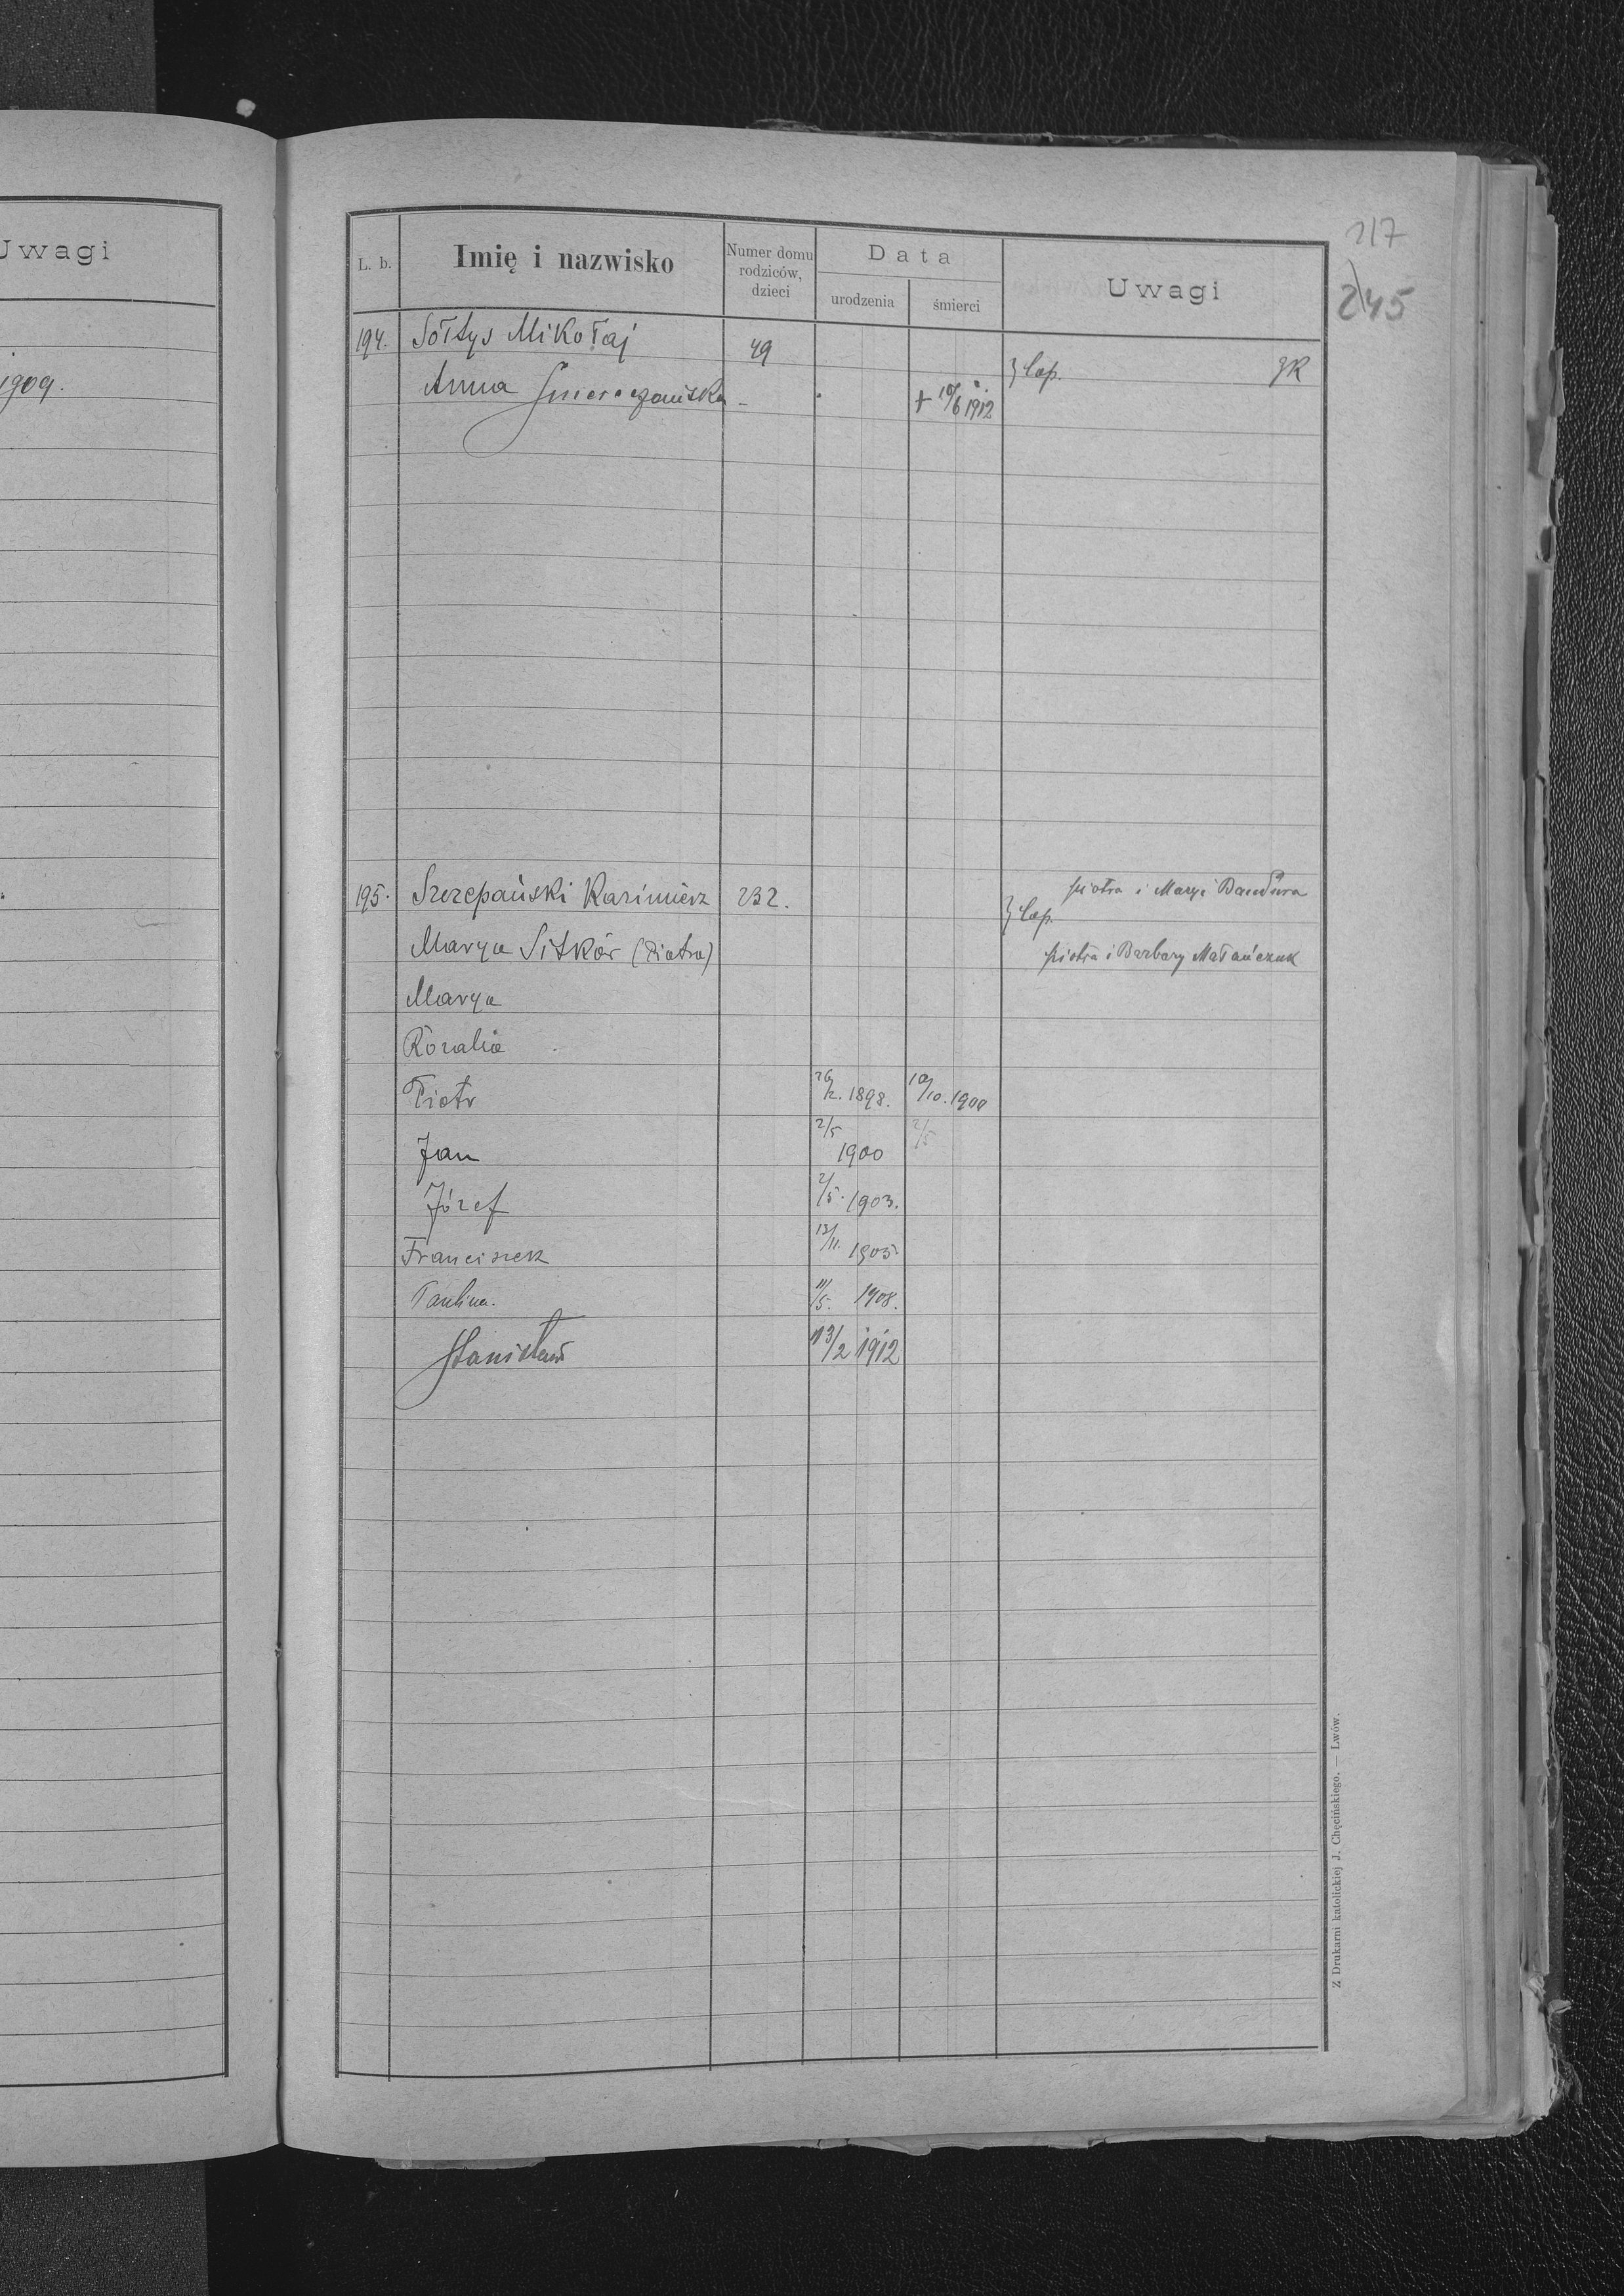 Uwagi
1909.
217
245
L. b.
Imię i nazwisko
Numer domu
rodziców,
dzieci
Data
urodzenia
śmierci
Uwagi
194. Sołtys Mikołaj 49 }cop. gR
Anna + 19/6 1912
195. Szczepański Kazimierz 232. }cop. piotra i Maryi Bandura
Marya Sitkór (Piotra) piotra i Barbary Matańczuk
Marya
Rozalia
Piotr 26/12. 1898. 10/10. 1900
Jan 2/5 1900 2/5
Józef 2/5. 1903.
Franciszek 13/11. 1905
Paulina. 11/5. 1908.
Stanisław 13/2 1912
Z Drukarni katolickiej J. Chęcińskiego. — Lwów.